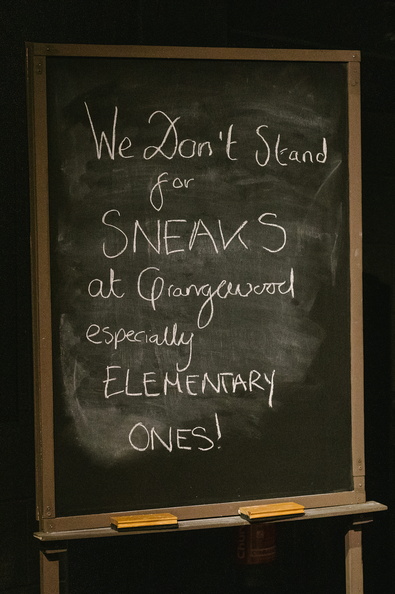 We Don't Stand
for
SNEAKS
at Grangewood
especially
ELEMENTARY
ONES!